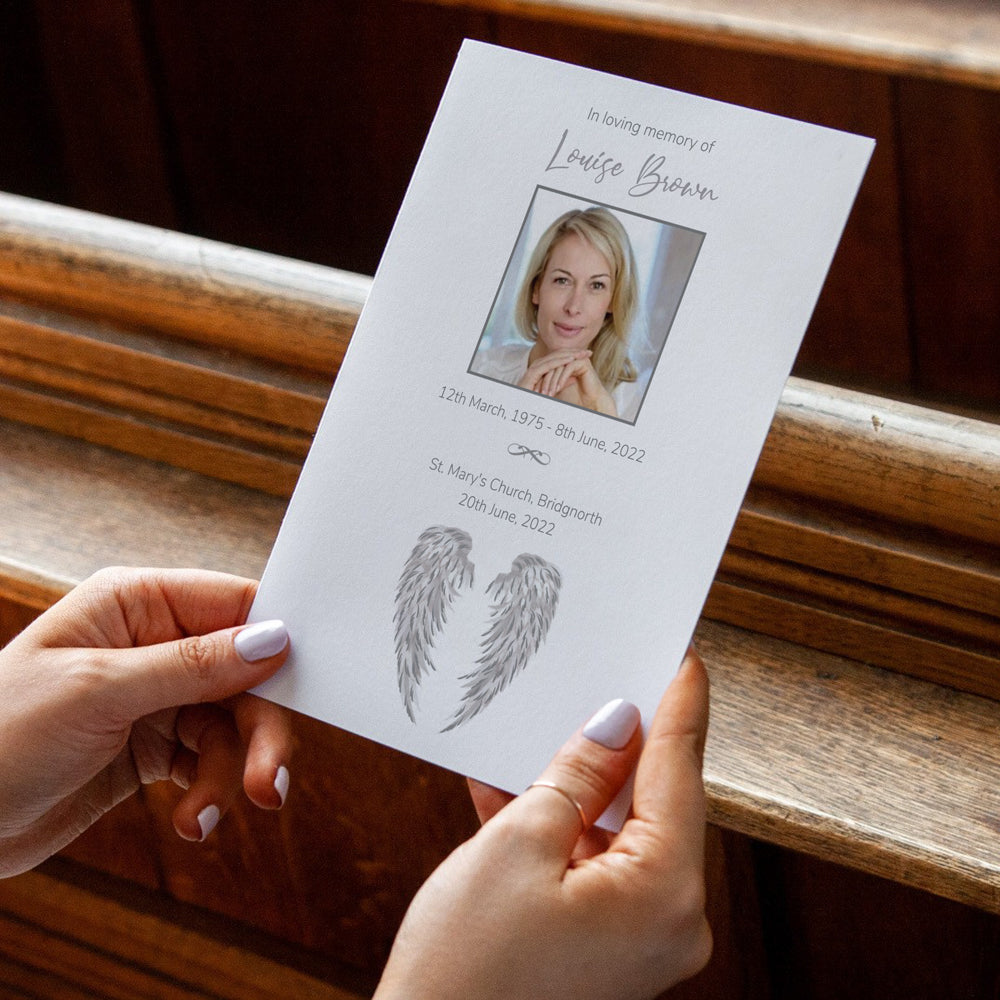 In loving memory of
Louise Brown
12th March, 1975 - 8th June, 2022
St. Mary's Church, Bridgnorth
20th June, 2022